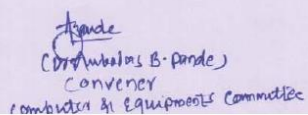 Apande
(Dr. Ambadas B. Pande)
Convener
Computer & Equipments Committee